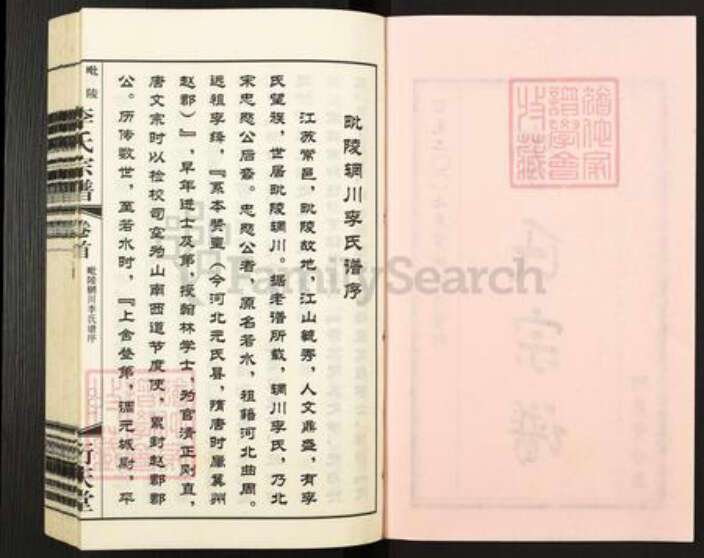 毗陵辋川李氏谱序
江苏常邑，毗陵故地，江山毓秀，人文鼎盛，有李
氏望族，世居毗陵辋川。据老谱所载，辋川李氏，乃北
宋忠愍公后裔。忠愍公者，原名若水，祖籍河北曲周。
远祖李绛，『系本赞皇（今河北元氏县，隋唐时属冀州
赵郡）』，早年进士及第，授翰林学士，为官清正刚直，
唐文宗时以检校司空为山南西道节度使，累封赵郡郡
公。历传数世，至若水时，『上舍登第，调元城尉，平
毗陵
李氏宗谱
卷首
毗陵辋川李氏谱序
行庆堂
宗谱
FamilySearch